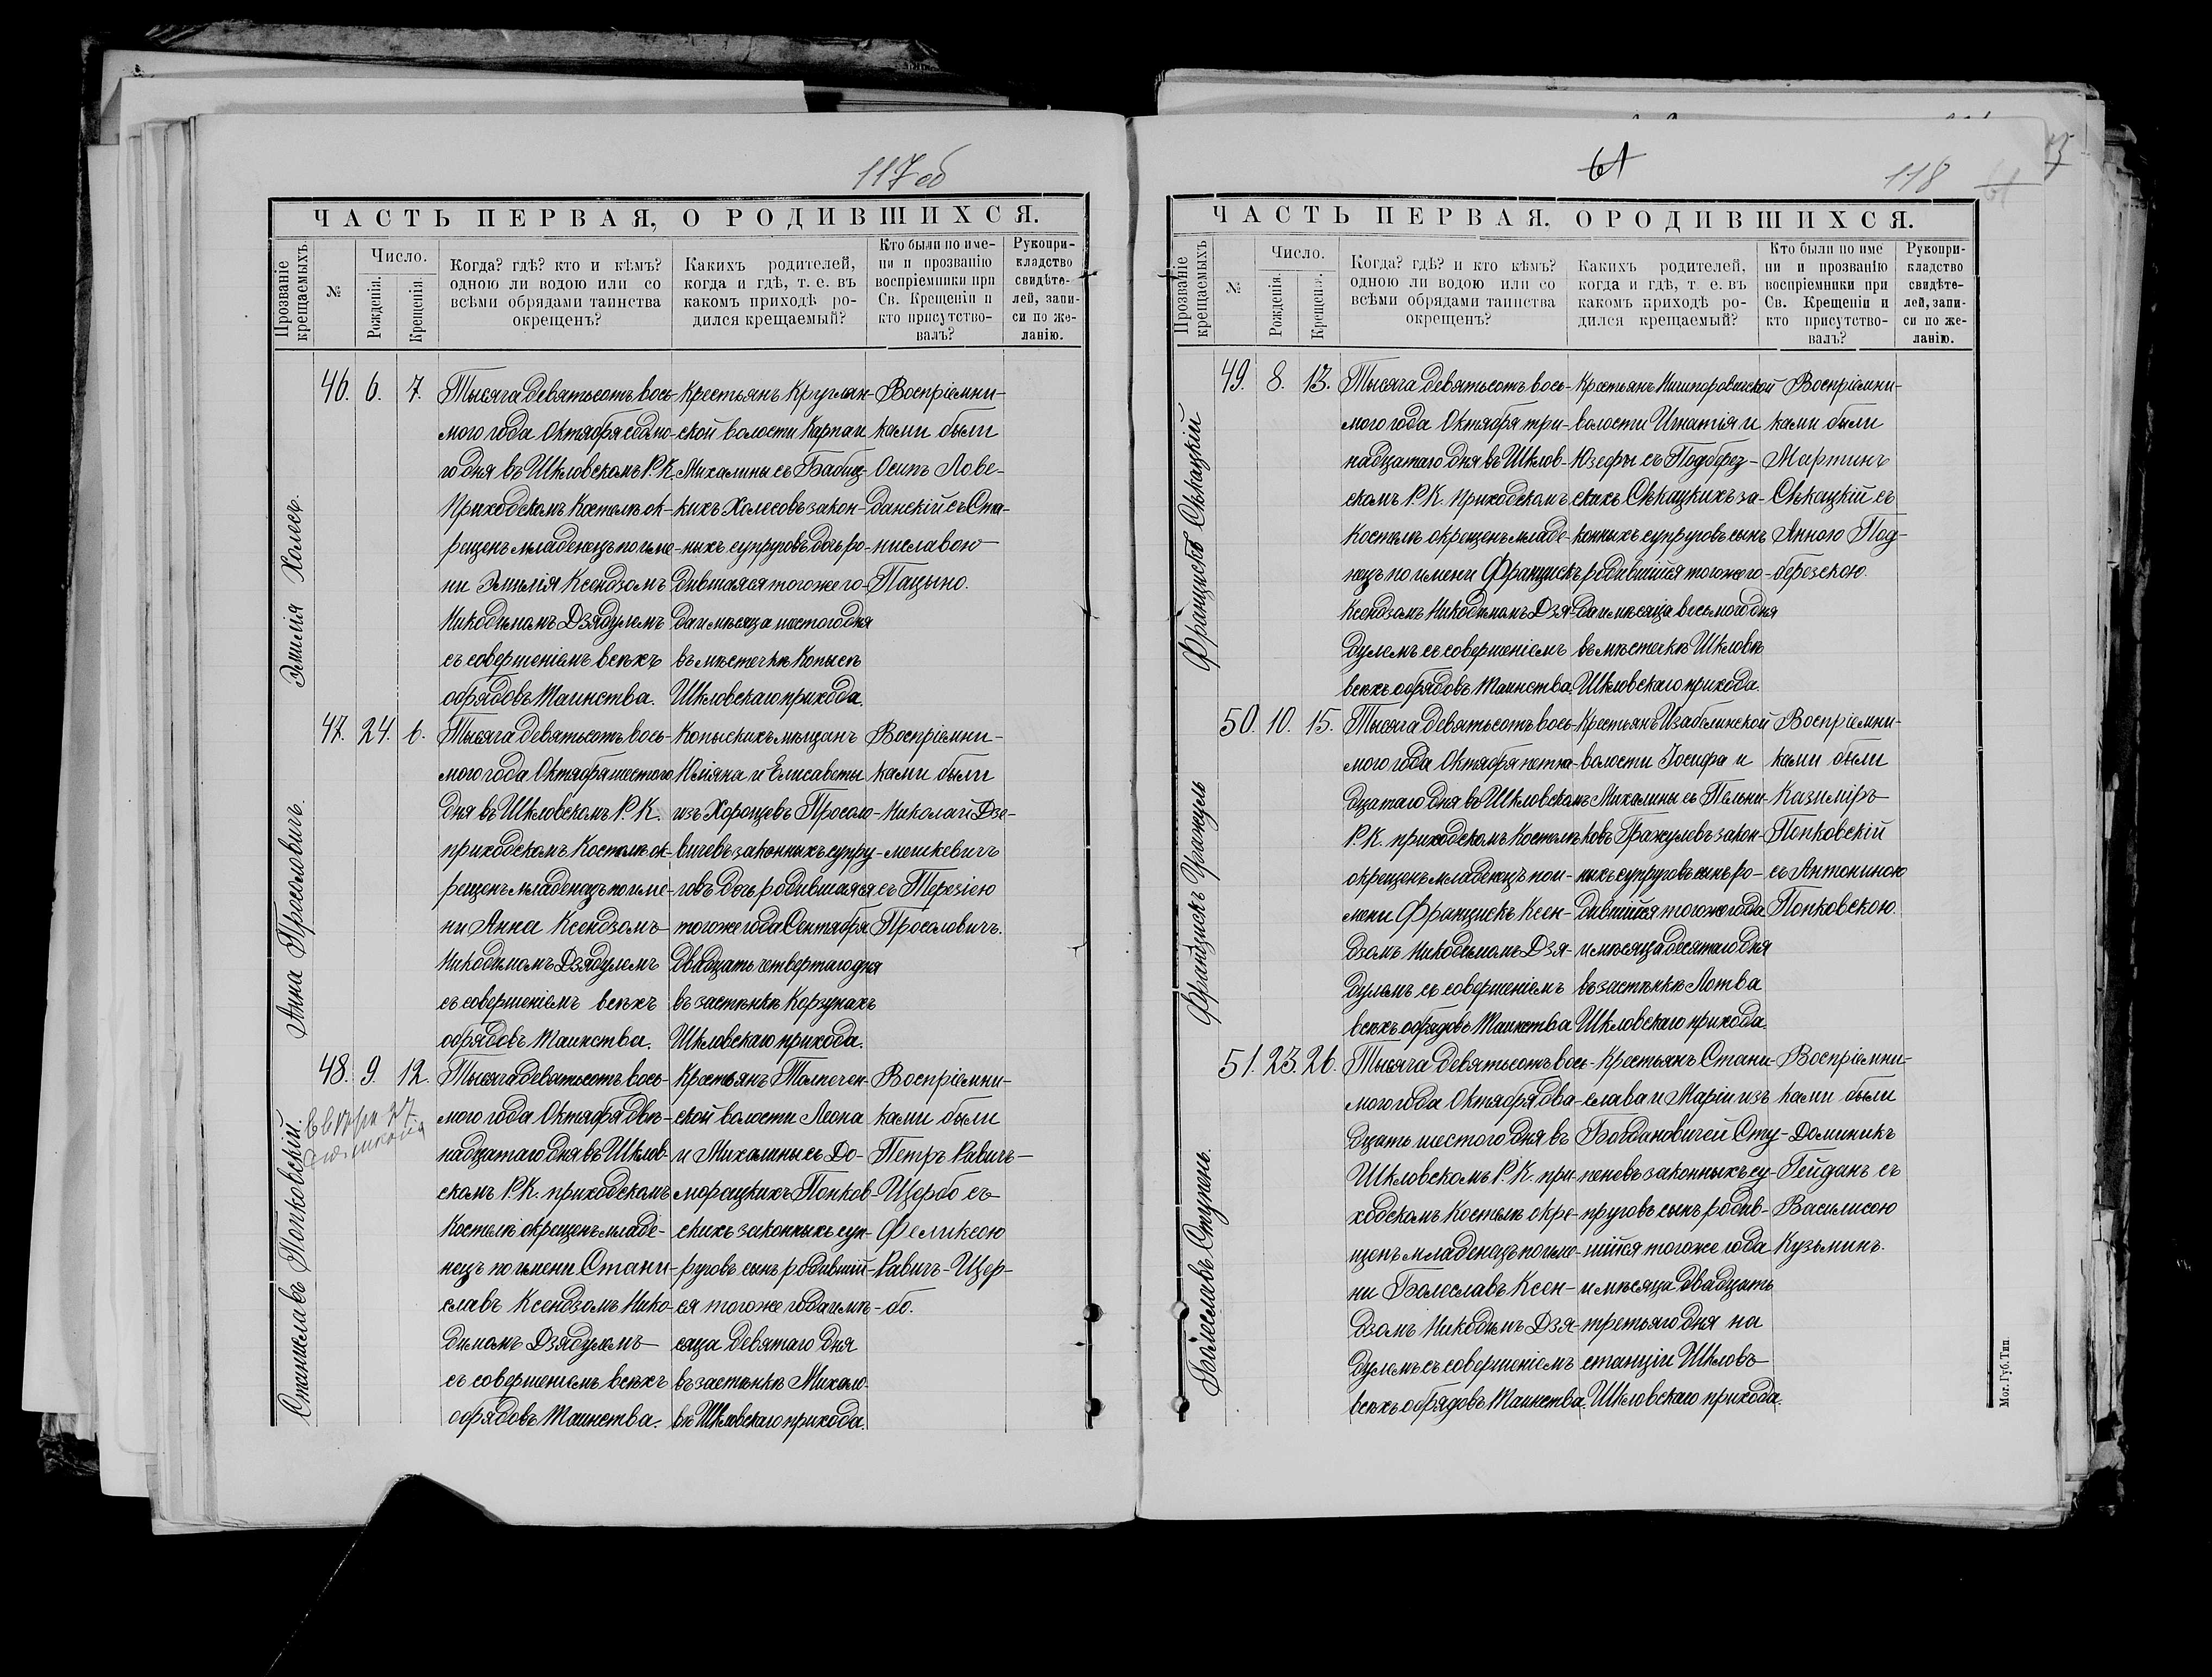 117 об
ЧАСТЬ ПЕРВАЯ, О РОДИВШИХСЯ.
Прозваніе крещаемыхъ.
№
Число.
Рожденія.
Крещенія.
Когда? гдѣ? кто и кѣмъ?
одною ли водою или со
всѣми обрядами таинства
окрещенъ?
Какихъ родителей,
когда и гдѣ, т. е. въ
какомъ приходѣ ро-
дился крещаемый?
Кто были по име-
ни и прозванію
воспріемники при
Св. Крещеніи и
кто присутство-
валъ?
Рукопри-
кладство
свидѣте-
лей, запи-
си по же-
ланію.
Эмилія Холесъ.
46. 6. 7.
Тысяча девятьсотъ вось-
мого года Октября седмо-
го дня въ Шкловскомъ Р. К.
Приходскомъ Костелѣ ок-
рещенъ младенецъ по име-
ни Эмилія Ксендзомъ
Никодимомъ Дзядулемъ
съ совершеніемъ всѣхъ
обрядовъ Таинства.
Крестьянъ Круглян-
ской волости Карпа и
Михалины съ Бабиц-
кихъ Холесовъ закон-
ныхъ супруговъ дочь ро-
дившаяся того же го-
да и мѣсяца шестого дня
въ мѣстечкѣ Копысѣ
Шкловскаго прихода.
Воспріемни-
ками были
Осипъ Лове-
данскій съ Ста-
ниславою
Пацыно.
Анна Просоловичъ.
47. 24. 6.
Тысяча девятьсотъ вось-
мого года Октября шестого
дня въ Шкловскомъ Р. К.
приходскомъ Костелѣ ок-
рещенъ младенецъ по име-
ни Анна Ксендзомъ
Никодимомъ Дзядулемъ
съ совершеніемъ всѣхъ
обрядовъ Таинства.
Копысскихъ мѣщанъ
Юліяна и Елисаветы
изъ Хорощевъ Просоло-
вичевъ законныхъ супру-
говъ дочь родившаяся
того же года Сентября
двадцать четвертаго дня
въ застѣнкѣ Корзунахъ
Шкловскаго прихода.
Воспріемни-
ками были
Николай Дзе-
мешкевичъ
съ Терезіею
Просоловичъ.
Станиславъ Попковскій.
48. 9. 12.
Тысяча девятьсотъ вось-
мого года Октября двѣ-
надцатаго дня въ Шклов-
скомъ Р. К. приходскомъ
Костелѣ окрещенъ младе-
нецъ по имени Стани-
славъ Ксендзомъ Нико-
димомъ Дзядулемъ
съ совершеніемъ всѣхъ
обрядовъ Таинства.
Крестьянъ Толпечен-
ской волости Леона
и Михалины съ До-
морацкихъ Попков-
скихъ законныхъ суп-
руговъ сынъ родившій-
ся того же года и мѣ-
сяца девятаго дня
въ застѣнкѣ Михало-
вѣ Шкловскаго прихода.
Воспріемни-
ками были
Петръ Равичъ-
Щербо съ
Феликсою
Равичъ-Щер-
бо.
61
118
ЧАСТЬ ПЕРВАЯ, О РОДИВШИХСЯ.
Прозваніе крещаемыхъ
№
Число.
Рожденія.
Крещенія.
Когда? гдѣ? и кто кѣмъ?
одною ли водою или со
всѣми обрядами таинства
окрещенъ?
Какихъ родителей,
когда и гдѣ, т. е. въ
какомъ приходѣ ро-
дился крещаемый?
Кто были по име
ни и прозванію
воспріемники при
Св. Крещеніи и
кто присутство-
валъ?
Рукопри-
кладство
свидѣте-
лей, запи-
си по же-
ланію.
Францискъ Сѣкацкій
49. 8. 13.
Тысяча девятьсотъ вось-
мого года Октября три-
надцатаго дня въ Шклов-
скомъ Р. К. приходскомъ
Костелѣ окрещенъ младе-
нецъ по имени Францискъ
Ксендзомъ Никодимомъ Дзя-
дулемъ съ совершеніемъ
всѣхъ обрядовъ Таинства.
Крестьянъ Ничипоровичской
волости Игнатія и
Юзефы съ Подберез-
скихъ Сѣкацкихъ за-
конныхъ супруговъ сынъ
родившійся того же го-
да и мѣсяца восьмого дня
въ мѣстечкѣ Шкловѣ
Шкловскаго прихода.
Воспріемни-
ками были
Мартинъ
Сѣкацкій съ
Анною Под-
березскою.
Францискъ Гражуль
50. 10. 15.
Тысяча девятьсотъ вось-
мого года Октября пятна-
дцатаго дня въ Шкловскомъ
Р. К. приходскомъ Костелѣ
окрещенъ младенецъ по и-
мени Францискъ Ксен-
дзомъ Никодимомъ Дзя-
дулемъ съ совершеніемъ
всѣхъ обрядовъ Таинства
Крестьянъ Изабелинской
волости Іосифа и
Михалины съ Пельни-
ковъ Гражулевъ закон-
ныхъ супруговъ сынъ ро-
дившійся того же года
и мѣсяца десятаго дня
въ застѣнкѣ Лотва
Шкловскаго прихода.
Воспріемни-
ками были
Казиміръ
Попковскій
съ Антониною
Попковскою.
Болеславъ Ступень.
51. 23. 26.
Тысяча девятьсотъ вось-
мого года Октября два-
дцать шестого дня въ
Шкловскомъ Р. К. при-
ходскомъ Костелѣ окре-
щенъ младенецъ по име-
ни Болеславъ Ксен-
дзомъ Никодимъ Дзя-
дулемъ съ совершеніемъ
всѣхъ обрядовъ Таинства.
Крестьянъ Стани-
слава и Маріи изъ
Богдановичей Сту-
пеневъ законныхъ су-
пруговъ сынъ родив-
шійся того же года
и мѣсяца двадцать
третьяго дня на
станціи Шкловъ
Шкловскаго прихода.
Воспріемни-
ками были
Доминикъ
Гейданъ съ
Василисою
Кузьминъ.
Мог. Губ. Тип.